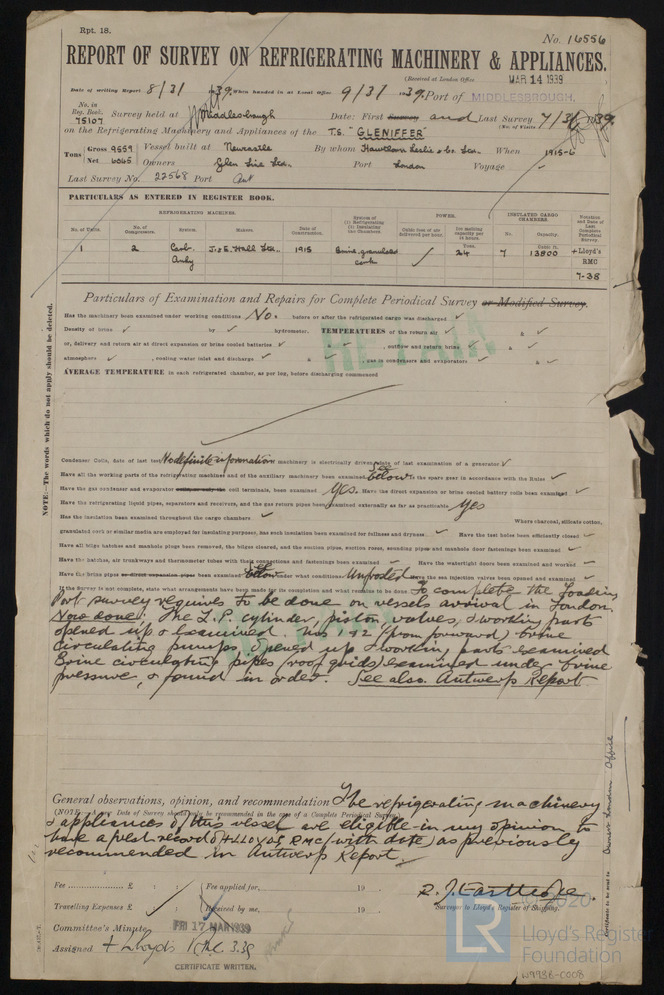 Rpt. 18.
No. 16556
REPORT OF SURVEY ON REFRIGERATING MACHINERY & APPLIANCES.
(Received at London Office MAR 14 1939
Date of writing Report 8/3/ 1939. When handed in at Local Office 9/3/ 1939. Port of MIDDLESBROUGH.
No. in Reg. Book. 75107 Survey held at Middlesbrough Date: First Survey and Last Survey 7/3/ 1939.
(No. of Visits
on the Refrigerating Machinery and Appliances of the T.S. "GLENIFFER"
Tons Gross 9559 Net 6065 Vessel built at Newcastle By whom Hawthorn Leslie & Co. Ltd. When 1915-6
Owners Glen Line Ltd. Port London Voyage
Last Survey No. 22568 Port Ant
PARTICULARS AS ENTERED IN REGISTER BOOK.
REFRIGERATING MACHINES. System of (1) Refrigerating (2) Insulating the Chambers. POWER. INSULATED CARGO CHAMBERS. Position and Date of Last Complete Periodical Survey
No. of Units. No. of Compressors. System. Makers. Date of Construction. Cubic feet of air delivered per hour. Ice melting capacity per 24 hours. No. Capacity.
Tons. Cubic ft.
1 2 Carb. Anhy J. & E. Hall Ltd. 1915 Brine, granulated cork 24 7 13800 +Lloyd's RMC 7-38
Particulars of Examination and Repairs for Complete Periodical Survey or Modified Survey.
Has the machinery been examined under working conditions No. before or after the refrigerated cargo was discharged
Density of brine by hydrometer. TEMPERATURES of the return air &
or, delivery and return air at direct expansion or brine cooled batteries & , outflow and return brine &
atmosphere , cooling water inlet and discharge & , gas in condensers and evaporators &
AVERAGE TEMPERATURE in each refrigerated chamber, as per log, before discharging commenced
RETAIN
NOTE:—The words which do not apply should be deleted.
Condenser Coils, date of last test No definite information machinery is electrically driven, date of last examination of a generator
Have all the working parts of the refrigerating machines and of the auxiliary machinery been examined See below Is the spare gear in accordance with the Rules
Have the gas condenser and evaporator coil terminals, been examined Yes. Have the direct expansion or brine cooled battery coils been examined
Have the refrigerating liquid pipes, separators and receivers, and the gas return pipes been examined externally as far as practicable Yes
Has the insulation been examined throughout the cargo chambers Where charcoal, silicate cotton,
granulated cork or similar media are employed for insulating purposes, has such insulation been examined for fullness and dryness Have the test holes been efficiently closed
Have all bilge hatches and manhole plugs been removed, the bilges cleared, and the suction pipes, suction roses, sounding pipes and manhole door fastenings been examined
Have the hatches, air trunkways and thermometer tubes with their connections and fastenings been examined Have the watertight doors been examined and worked
Have the brine pipes or direct expansion pipes been examined below Under what conditions Unfrosted Have the sea injection valves been opened and examined
If the Survey is not complete, state what arrangements have been made for its completion and what remains to be done To complete the Loading
Port survey requires to be done on vessels arrival in London.
Now done:- The L.P. cylinder, piston valves, & working parts
opened up & examined. Nos 1 & 2 (from forward) brine
circulating pumps opened up & working parts examined
Brine circulating pipes (roof grids) examined under brine
pressure, & found in order. See also Antwerp Report.
General observations, opinion, and recommendation The refrigerating machinery
& appliances of this vessel are eligible in my opinion to
have a fresh record of +LLOYDS RMC (with date) as previously
recommended in Antwerp Report.
Fee £ : : Fee applied for, 19
Travelling Expenses £ : : Received by me, 19
Surveyor to Lloyd's Register of Shipping.
Committee's Minute FRI 17 MAR 1939
Assigned + Lloyd's RMC 3.39
CERTIFICATE WRITTEN.
Certificate to be sent to Owners London Office
© 2020
LR
Lloyd's Register
Foundation
W998B-0008